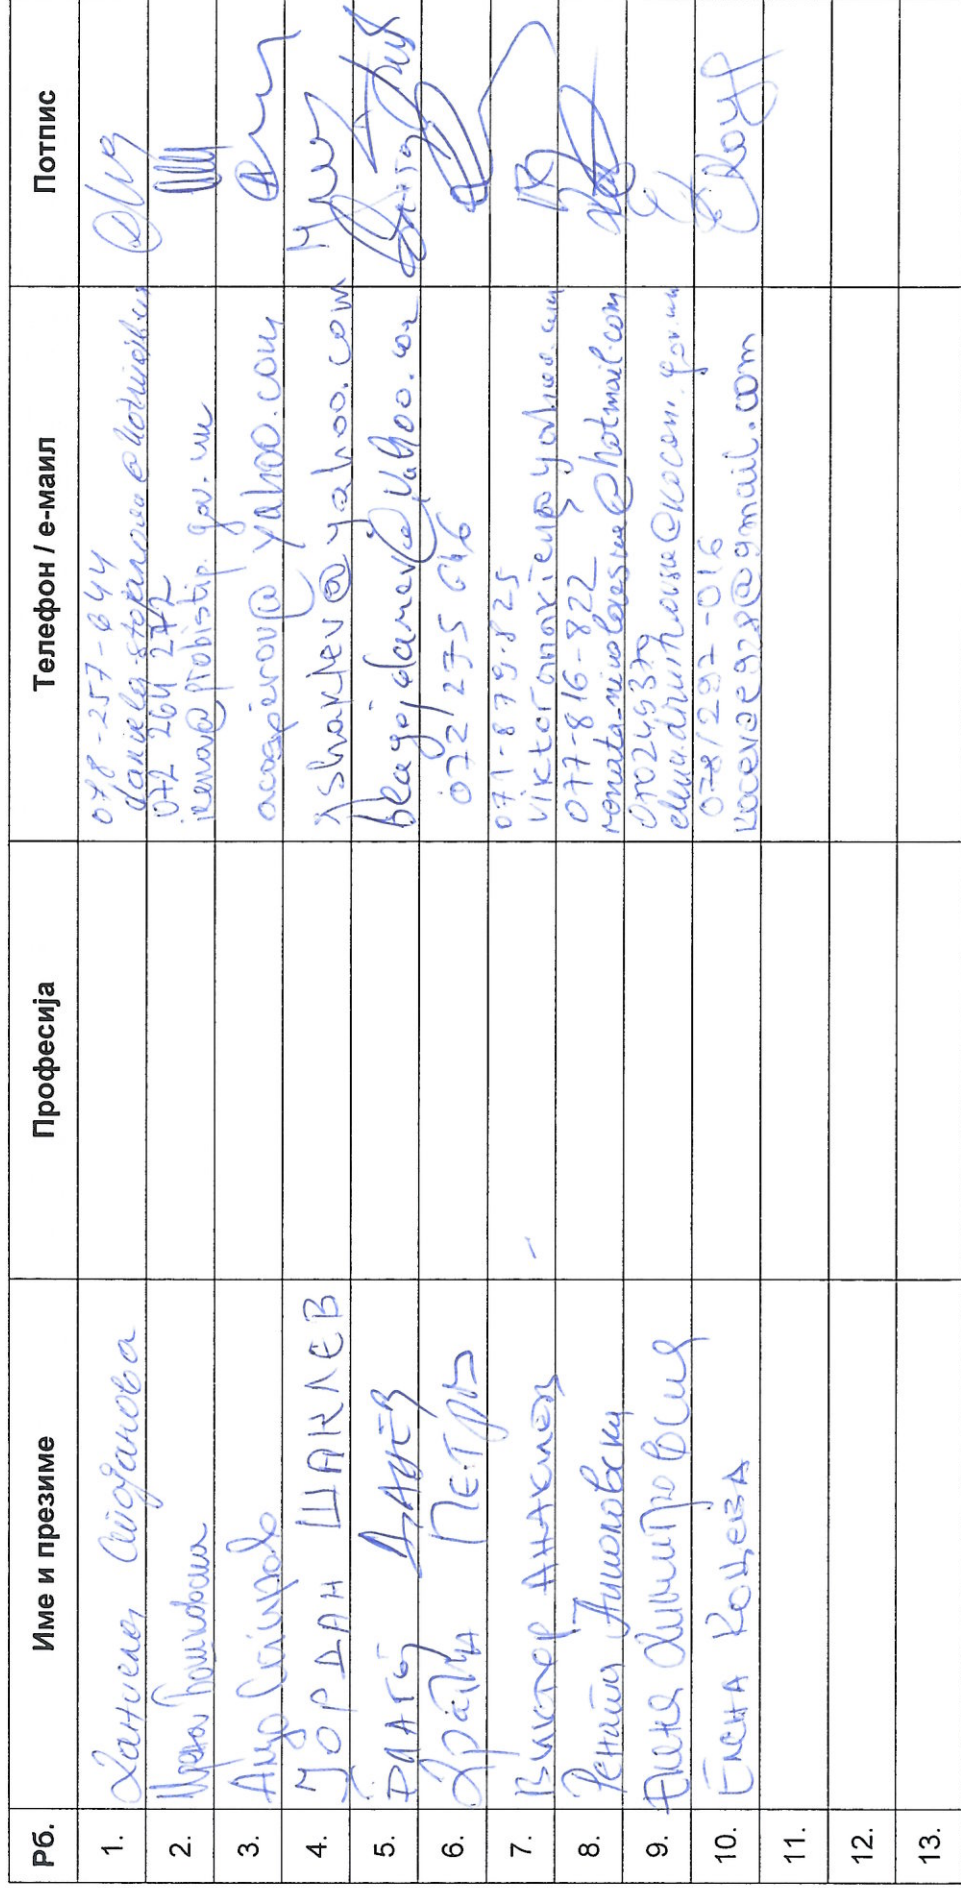 Рб. Име и презиме Професија Телефон / е-маил Потпис
1. Даниела Стојанова 078-257-644
2. Ирена 072 264 272
irena@probistip.gov.mk
3. Ацо Спиров acospirov@yahoo.com
4. ЈОРДАН ШАКЛЕВ jshaklev@yahoo.com
5. БЛАГОЈ ДАНЕВ blagojdanev@yahoo.com
6. Драган ПЕТРОВ 072/275 646
7. ВИКТОР АНАКИЕВ 071-879-825
viktoranakiev@yahoo.com
8. Рената Николовска 077-816-822
renata.nikolovska@hotmail.com
9. Елена Димитровска
10. ЕЛЕНА КОЦЕВА 078/297-016
koceva8928@gmail.com
11.
12.
13.